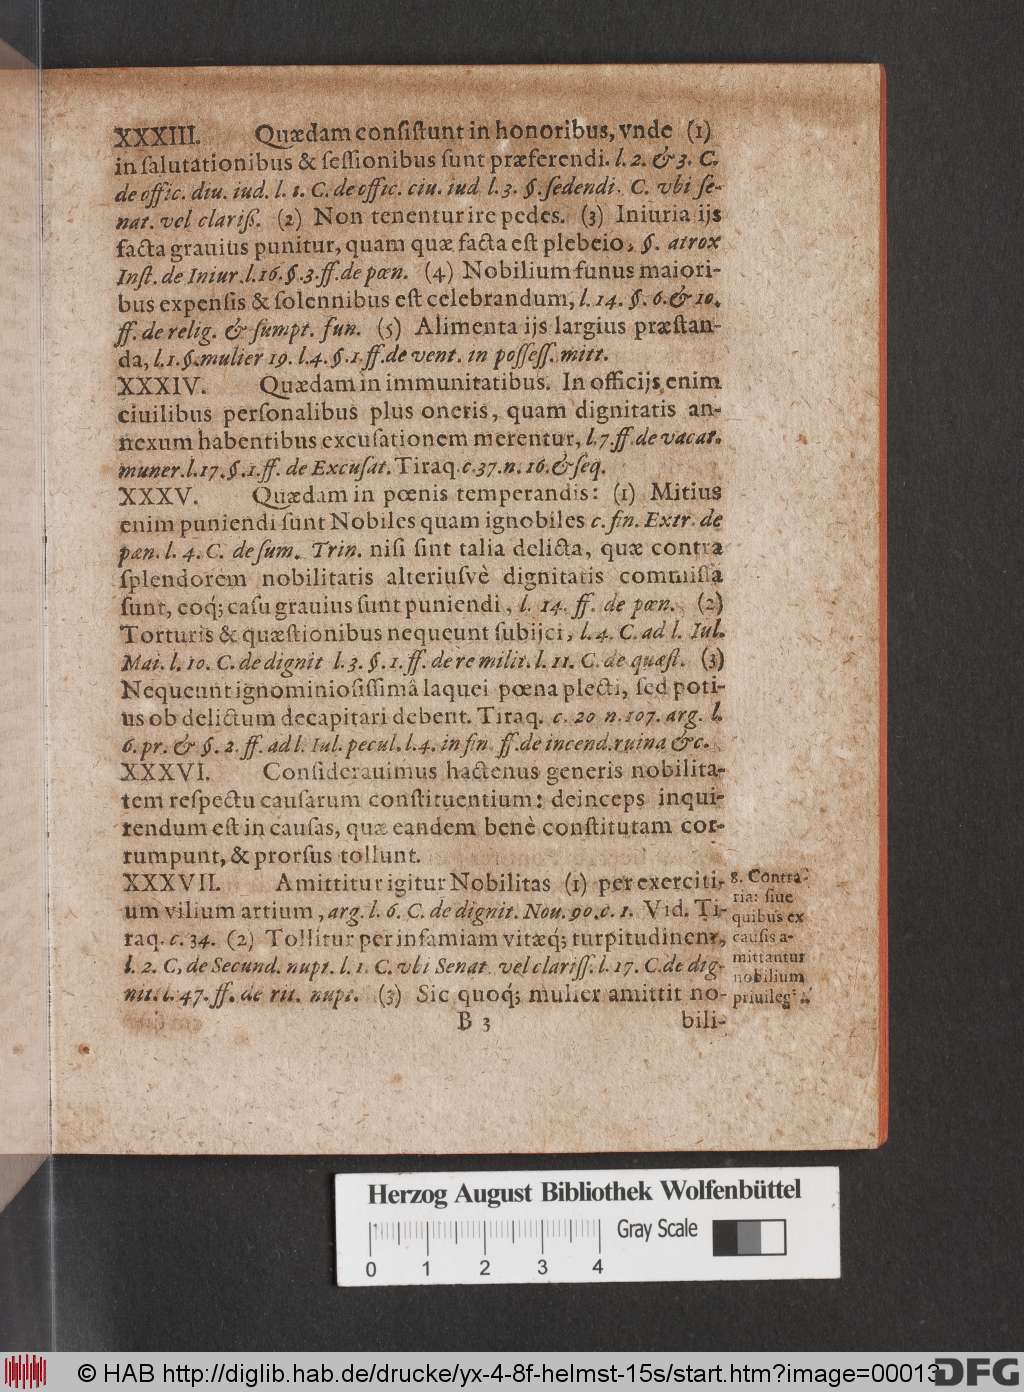 XXXIII. Quædam consistunt in honoribus, vnde (1)
in salutationibus & sessionibus sunt præferendi. l. 2. & 3. C.
de offic. diu. iud. l. 1. C. de offic. ciu. iud l. 3. §. sedendi. C. vbi se-
nat. vel clariß. (2) Non tenentur ire pedes. (3) Iniuria ijs
facta grauius punitur, quam quæ facta est plebeio, §. atrox
Inst. de Iniur. l. 16. §. 3. ff. de pœn. (4) Nobilium funus maiori-
bus expensis & solennibus est celebrandum, l. 14. §. 6. & 10.
ff. de relig. & sumpt. fun. (5) Alimenta ijs largius præstan-
da, l. 1. §. mulier 19. l. 4. §. 1. ff. de vent. in possess. mitt.
XXXIV. Quædam in immunitatibus. In officijs enim
ciuilibus personalibus plus oneris, quam dignitatis an-
nexum habentibus excusationem merentur, l. 7. ff. de vacat.
muner. l. 17. §. 1. ff. de Excusat. Tiraq. c. 37. n. 16. & seq.
XXXV. Quædam in pœnis temperandis: (1) Mitius
enim puniendi sunt Nobiles quam ignobiles c. fin. Extr. de
pœn. l. 4. C. de sum. Trin. nisi sint talia delicta, quæ contra
splendorem nobilitatis alteriusvè dignitatis commissa
sunt, eoq; casu grauius sunt puniendi, l. 14. ff. de pœn. (2)
Torturis & quæstionibus nequeunt subijci, l. 4. C. ad l. Iul.
Mai. l. 10. C. de dignit l. 3. §. 1. ff. de re milit. l. 11. C. de quæst. (3)
Nequeunt ignominiosissimâ laquei pœna plecti, sed poti-
us ob delictum decapitari debent. Tiraq. c. 20 n. 107. arg. l.
6. pr. & §. 2. ff. ad l. Iul. pecul. l. 4. in fin. ff. de incend. ruina &c.
XXXVI. Considerauimus hactenus generis nobilita-
tem respectu causarum constituentium: deinceps inqui-
rendum est in causas, quæ eandem benè constitutam cor-
rumpunt, & prorsus tollunt.
XXXVII. Amittitur igitur Nobilitas (1) per exerciti-
um vilium artium, arg. l. 6. C. de dignit. Nou. 90. c. 1. Vid. Ti-
raq. c. 34. (2) Tollitur per infamiam vitæq; turpitudinem,
l. 2. C. de Secund. nupt. l. 1. C. vbi Senat vel clariss. l. 17. C. de dig-
nit. l. 47. ff. de rit. nupt. (3) Sic quoq; mulier amittit no-
8. Contra-
ria: siue
quibus ex
causis a-
mittantur
nobilium
priuileg
B 3 bili-
Herzog August Bibliothek Wolfenbüttel
Gray Scale
0 1 2 3 4
© HAB http://diglib.hab.de/drucke/yx-4-8f-helmst-15s/start.htm?image=00013
DFG